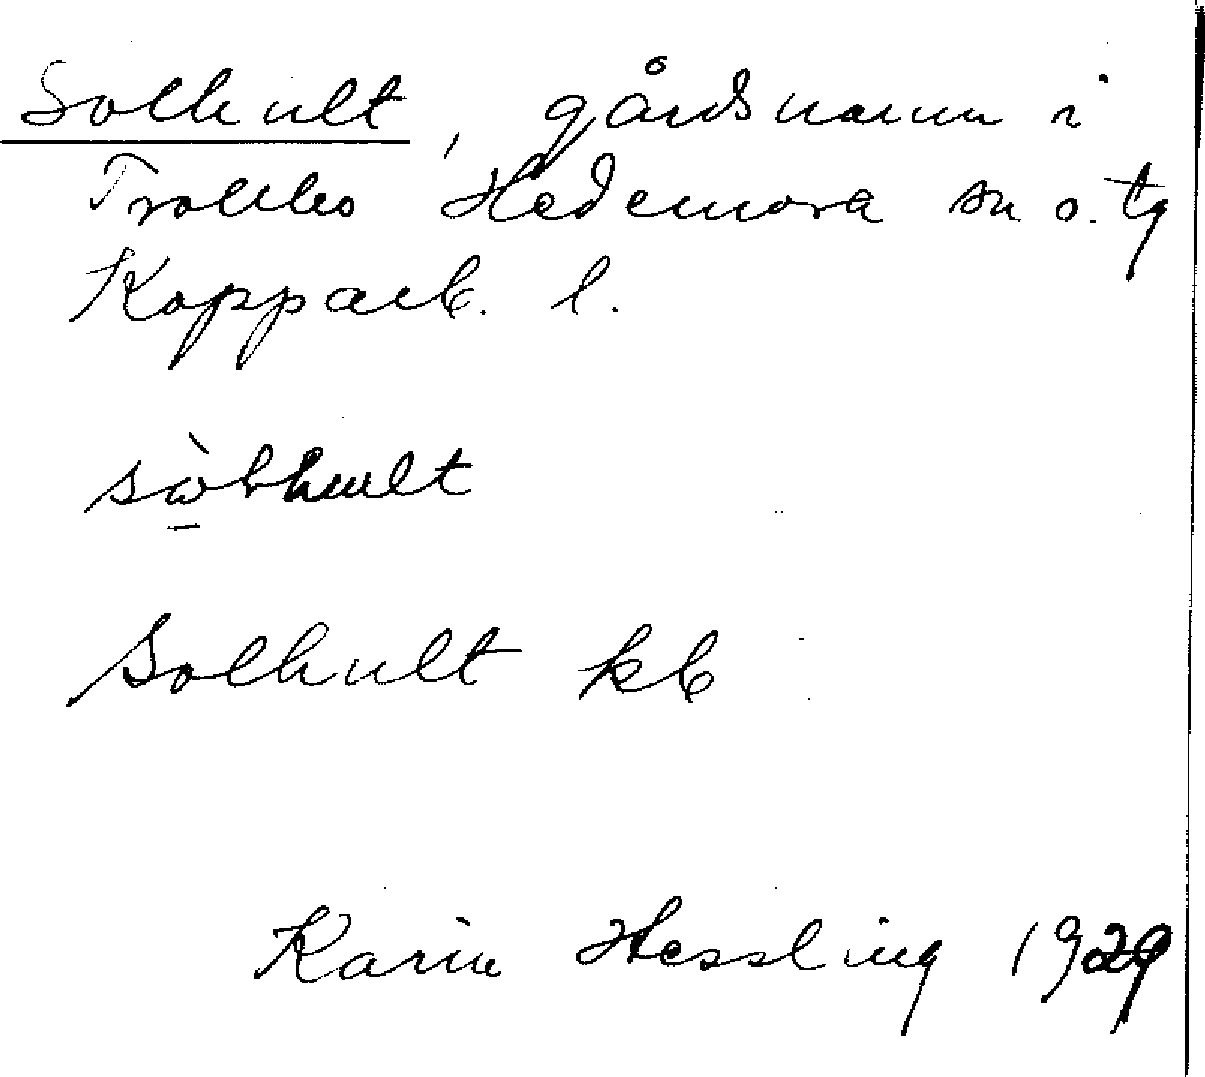 Solhult, gårdsnamn i
Trollbo Hedemora sn o. tg
Kopparb. l.
sòlhult
Solhult kb
Karin Hessling 1929